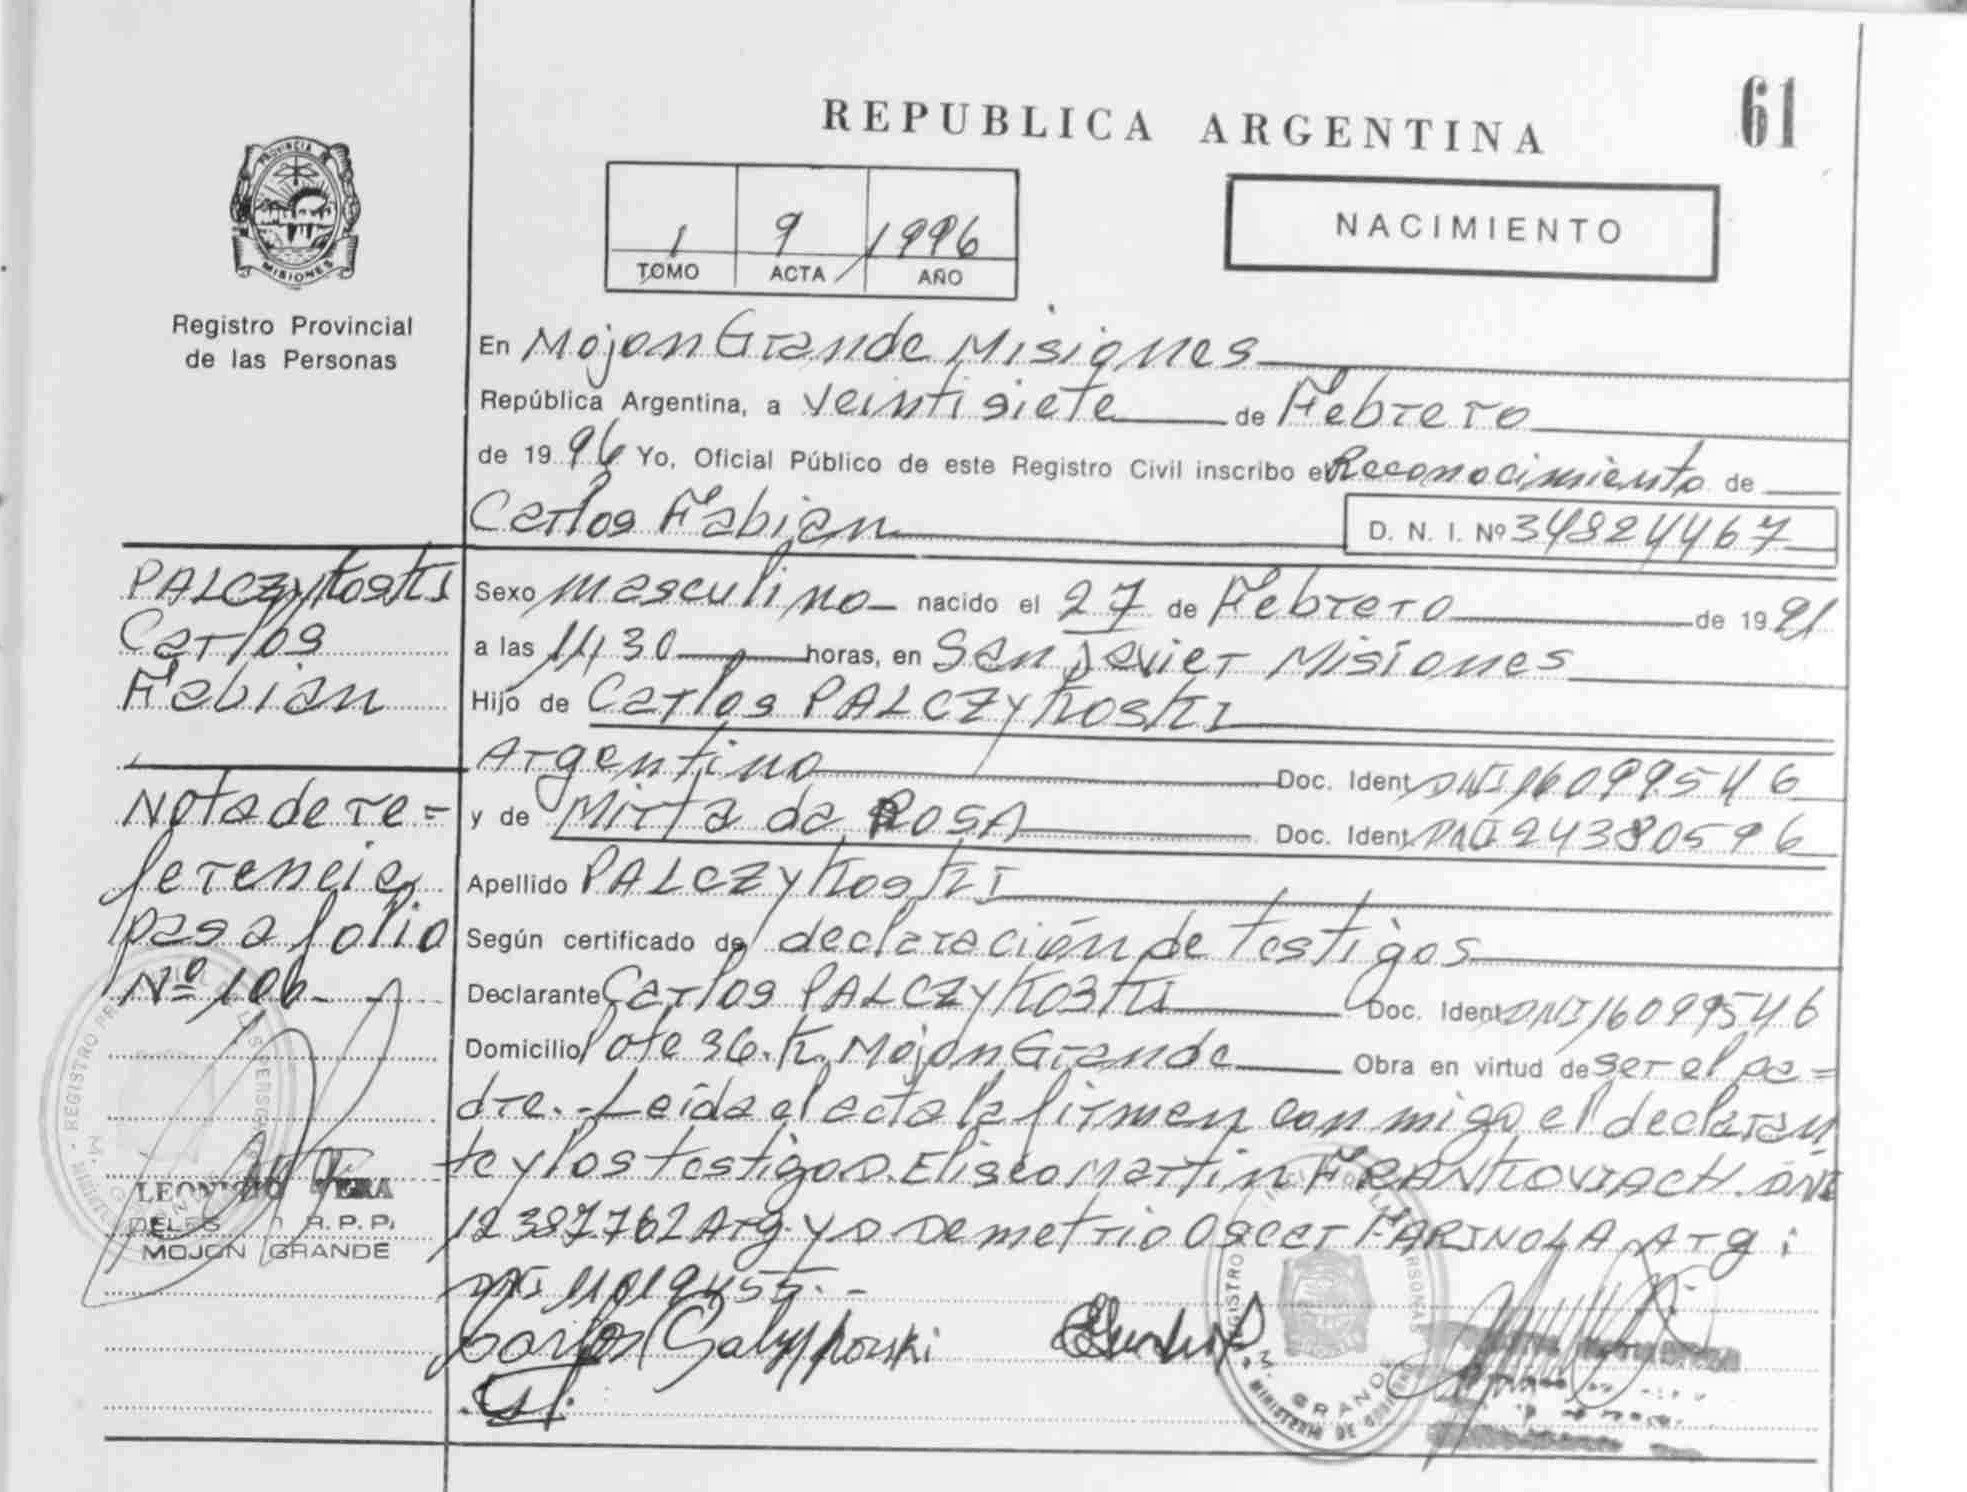 61
REPUBLICA ARGENTINA
NACIMIENTO
PROVINCIA DE
MISIONES
Registro Provincial
de las Personas
1 9 1996
TOMO ACTA AÑO
En Mojon Grande Misiones
República Argentina, a veintisiete de Febrero
de 1996 Yo, Oficial Público de este Registro Civil inscribo el Reconocimiento de
Carlos Fabian D. N. I. Nº 34824467
PALCZyKosKI
Carlos
Fabian
Sexo masculino nacido el 27 de Febrero de 1991
a las 14 30 horas, en San Javier Misiones
Hijo de Carlos PALCZyKosKI
Argentino Doc. Ident DNI 16099546
y de Mirta da ROSA Doc. Ident DNI 24380596
Apellido PALCZyKosKI
Según certificado de declaración de testigos
Declarante Carlos PALCZyKosKI Doc. Ident DNI 16099546
Domicilio lote 36.K. Mojon Grande Obra en virtud de ser el pa=
dre.-Leida el acta la firman conmigo el declaran
te y los testigos. Eliseo Martin FRANKOVIACH. DNI
12387762 Arg. y D Demetrio Oscar FARINOLA Arg:
DNI 11019455.-
Nota de re=
ferencia
pasa folio
Nº 106-
LEONICIO VERA
R.P.P.
MOJON GRANDE
Carlos